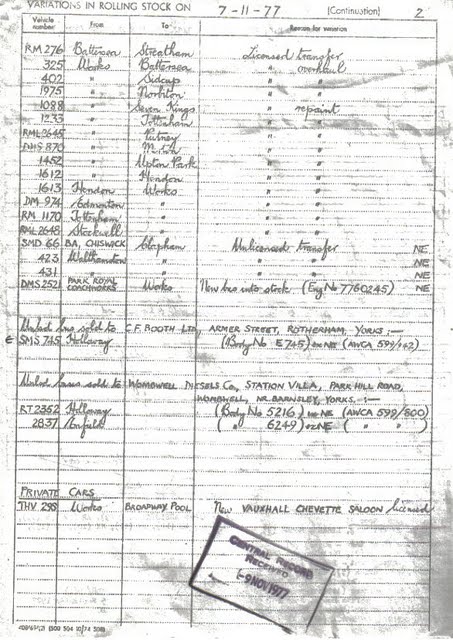 VARIATIONS IN ROLLING STOCK ON 7-11-77 (Continuation) 2
Vehicle number From To Reason for variation
RM 276 Battersea Streatham Licensed transfer
325 Works Battersea " overhaul
402 " Sidcup " "
1975 " Norbiton " "
1088 " Seven Kings " repaint
1233 " Tottenham " "
RML 2645 " Putney " "
DMS 870 " Merton " "
1452 " Upton Park " "
1612 " Hendon " "
1613 Hendon Works " "
DM 974 Edmonton " " "
RM 1170 Tottenham " " "
RML 2648 Stockwell " " "
SMD 66 BA, CHISWICK Clapham Unlicensed transfer NE
423 Walthamstow " " " NE
431 " " " " NE
DMS 2521 PARK ROYAL COACHWORKS Works New bus into stock (Eng No 7760245) NE
Unlicd bus sold to C.F. BOOTH LTD, ARMER STREET, ROTHERHAM, YORKS :—
SMS 745 Holloway (Body No E745) NE (AWCA 599/162)
Unlicd buses sold to WOMBWELL DIESELS Co, STATION VILLA, PARK HILL ROAD,
WOMBWELL, NR. BARNSLEY, YORKS. :—
RT 2362 Holloway (Body No 5216) NE (AWCA 599/800)
2837 Enfield ( " 6249) NE ( " " )
PRIVATE CARS
THV 298 Works BROADWAY POOL New VAUXHALL CHEVETTE SALOON licensed
CENTRAL RECORD
RECEIVED
-9 NOV 1977